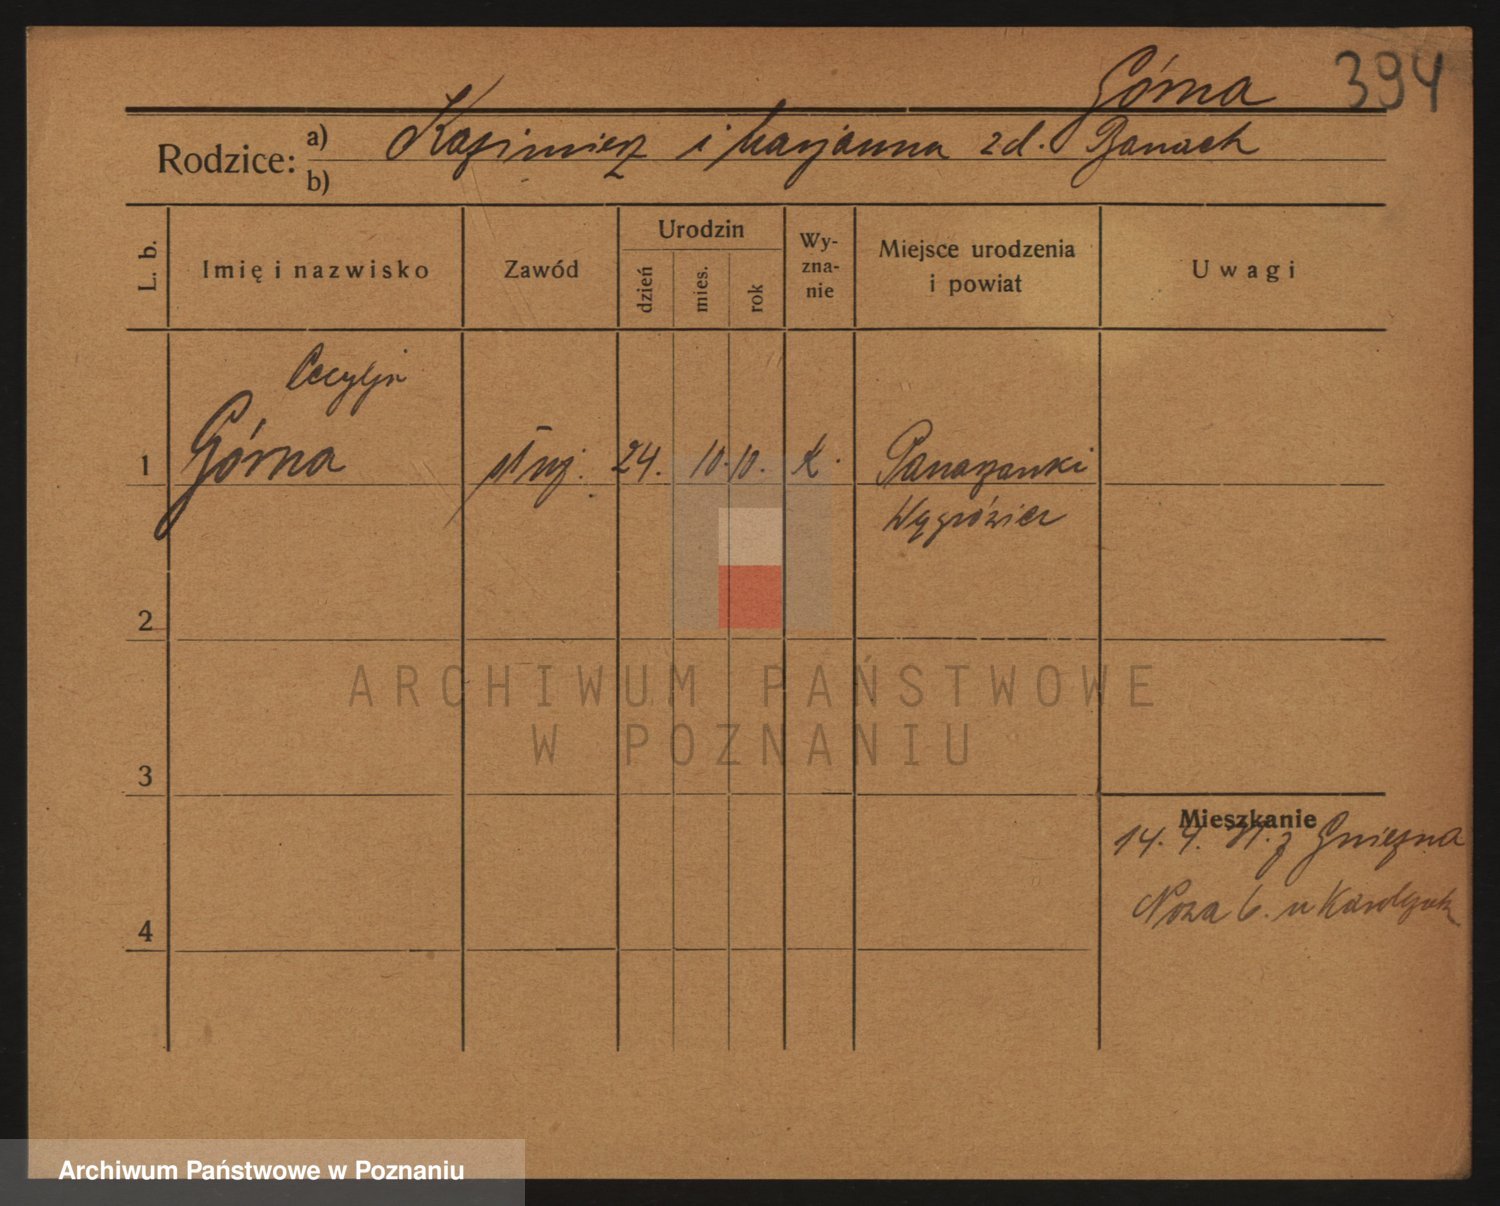 Górna 394
Rodzice: a) Kazimierz i Marjanna zd. Banach
b)
L. b. Imię i nazwisko Zawód Urodzin dzień mies. rok Wy-zna-nie Miejsce urodzenia i powiat Uwagi
Cecylja
1 Górna służ. 24. 10. 10. k.
Wągrówiec
2
ARCHIWUM PAŃSTWOWE
W POZNANIU
3
Mieszkanie
14. 4. 31. z Gniezna
6. u
4
Archiwum Państwowe w Poznaniu